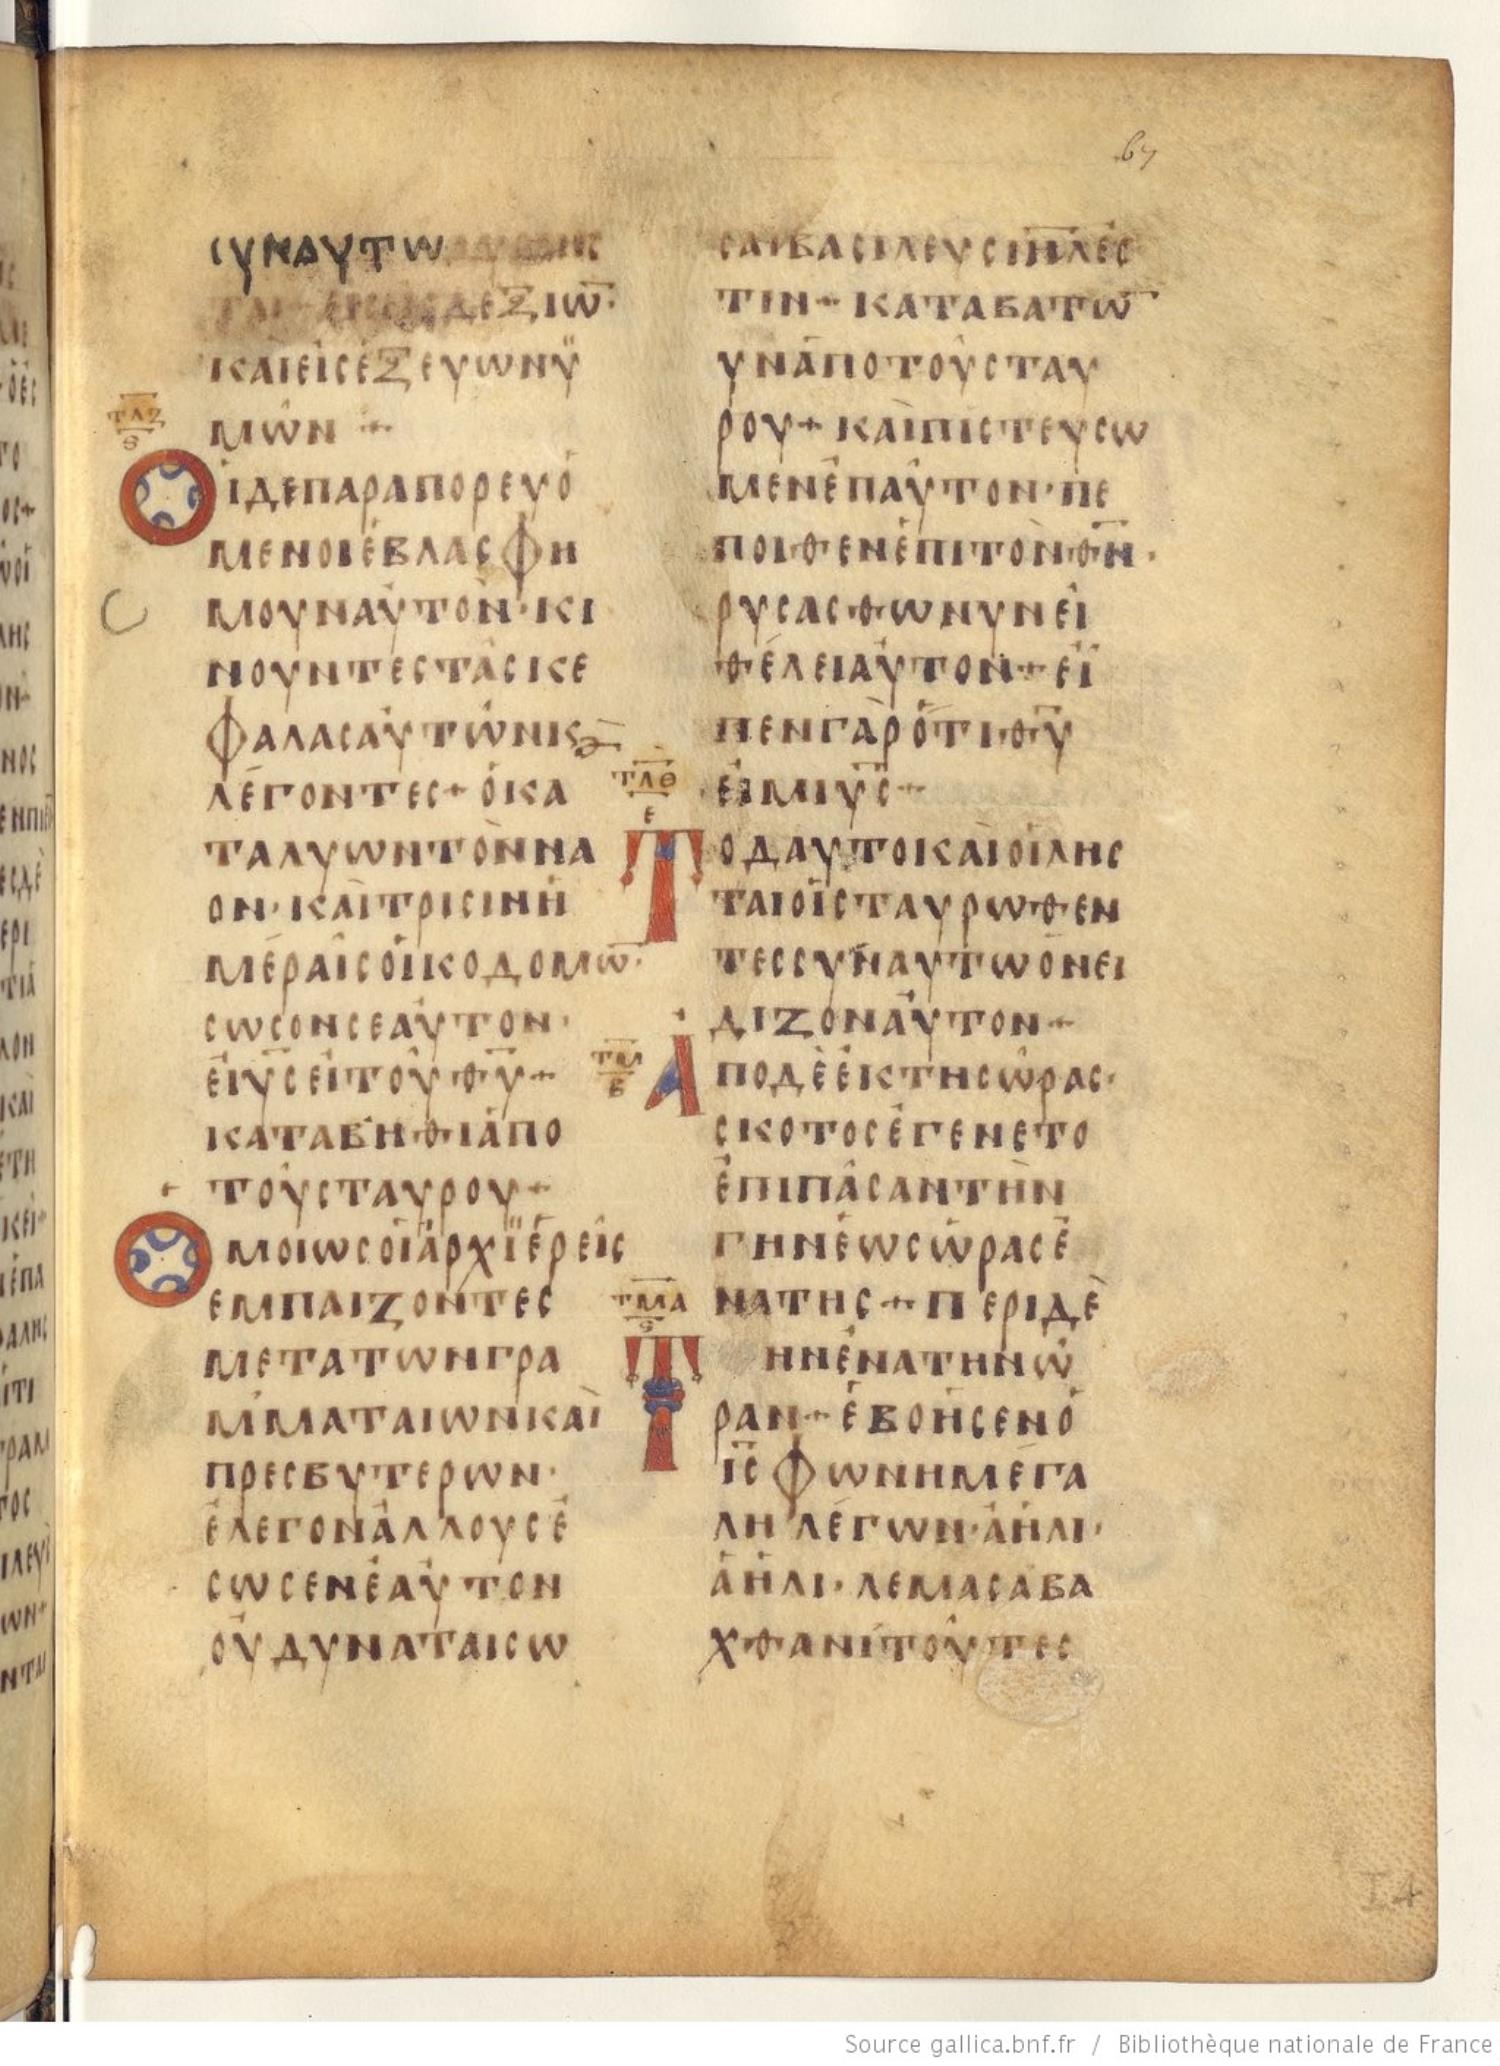 67
ϹΥΝΑΥΤΩ
ΔΕΞΙΩ̅·
ΚΑΙΕΙϹΕΞΕΥΩΝΫ
ΜΩΝ +
ΤΛΖ
Θ
ΟΙΔΕΠΑΡΑΠΟΡΕΥΟ
ΜΕΝΟΙΕΒΛΑϹΦΗ
ΜΟΥΝΑΥΤΟΝ·ΚΙ
ΝΟΥΝΤΕϹΤΑϹΚΕ
ΦΑΛΑϹΑΥΤΩΝΚ
ΛΕΓΟΝΤΕϹ+ΟΚΑ
ΤΑΛΥΩΝΤΟΝΝΑ
ΟΝ·ΚΑΙΤΡΙϹΙΝΗ
ΜΕΡΑΙϹΟΙΚΟΔΟΜΩ̅·
ϹΩϹΟΝϹΕΑΥΤΟΝ·
ΕΙΥ̅Ϲ̅ΕΙΤΟΥΘ̅Υ̅+
ΚΑΤΑΒΗΘΙΑΠΟ
ΤΟΥϹΤΑΥΡΟΥ+
ΟΜΟΙΩϹΟΙΑΡΧΪΕΡΕΙϹ
ΕΜΠΑΙΖΟΝΤΕϹ
ΜΕΤΑΤΩΝΓΡΑ
ΜΜΑΤΑΙΩΝΚΑΙ
ΠΡΕϹΒΥΤΕΡΩΝ·
ΕΛΕΓΟΝΑΛΛΟΥϹΕ
ϹΩϹΕΝΕΑΥΤΟΝ
ΟΥΔΥΝΑΤΑΙϹΩ
ϹΑΙΒΑϹΙΛΕΥϹΙ̅Η̅Λ̅ΕϹ
ΤΙΝ+ΚΑΤΑΒΑΤΩ̅
ΥΝΑΠΟΤΟΥϹΤΑΥ
ΡΟΥ+ΚΑΙΠΙϹΤΕΥϹΩ
ΜΕΝΕΠΑΥΤΟΝ·ΠΕ
ΠΟΙΘΕΝΕΠΙΤΟΝΘ̅Ν̅·
ΡΥϹΑϹΘΩΝΥΝΕΙ
ΘΕΛΕΙΑΥΤΟΝ+ΕΪ
ΠΕΝΓΑΡΟΤΙΘ̅Υ̅
ΕΙΜΙΥ̅Ϲ̅+
ΤΛΘ
Ε
ΤΟΔΑΥΤΟΚΑΙΟΙΛΗϹ
ΤΑΙΟΙϹΤΑΥΡΩΘΕΝ
ΤΕϹϹΥΝΑΥΤΩΟΝΕΙ
ΔΙΖΟΝΑΥΤΟΝ+
ΤΜ
Β
ΑΠΟΔΕΕΚΤΗϹΩΡΑϹ·
ϹΚΟΤΟϹΕΓΕΝΕΤΟ
ΕΠΙΠΑϹΑΝΤΗΝ
ΓΗΝΕΩϹΩΡΑϹΕ
ΝΑΤΗϹ+ΠΕΡΙΔΕ
ΤΜΑ
Ϛ
ΤΗΝΕΝΑΤΗΝΩ
ΡΑΝ+ΕΒΟΗϹΕΝΟ
Ι̅Ϲ̅ΦΩΝΗΜΕΓΑ
ΛΗΛΕΓΩΝ·ΑΗΛΙ·
ΑΗΛΙ·ΛΕΜΑϹΑΒΑ
ΧΘΑΝΙΤΟΥΤΕϹ
Source gallica.bnf.fr / Bibliothèque nationale de France